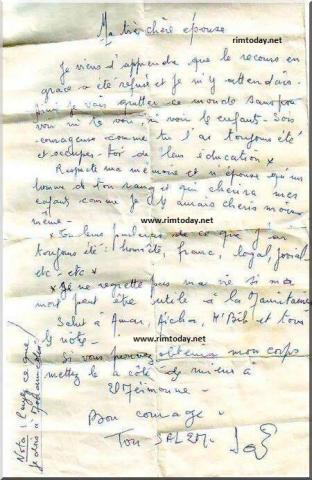 www.rimtoday.net
Ma très chère épouse
Je viens d'apprendre que le recours en
grâce a été refusé et je m'y attendais.
je vais quitter ce monde sans pou
voir ni te voir, ni voir les enfants. Sois
courageuse comme tu l'as toujours été
et occupes-toi de leur éducation x
Respecte ma mémoire et n'épouse qu'un
homme de ton rang et qui chérira mes
enfants comme je les aurais chéris moi
même -
www.rimtoday.net
x Tu leur parleras de ce que j'ai
toujours été : honnête, franc, loyal, jovial
etc etc x
x Je ne regrette pas ma vie si ma
mort peut être utile à la Mauritanie
Salut à Amar, Aïcha, M'Bib et tous
les nôtres -
www.rimtoday.net
Si vous pouvez obtenir mon corps
mettez le à côté des miens à
Bon courage -
Ton SALEM
Nota : payez ce que
je dois à